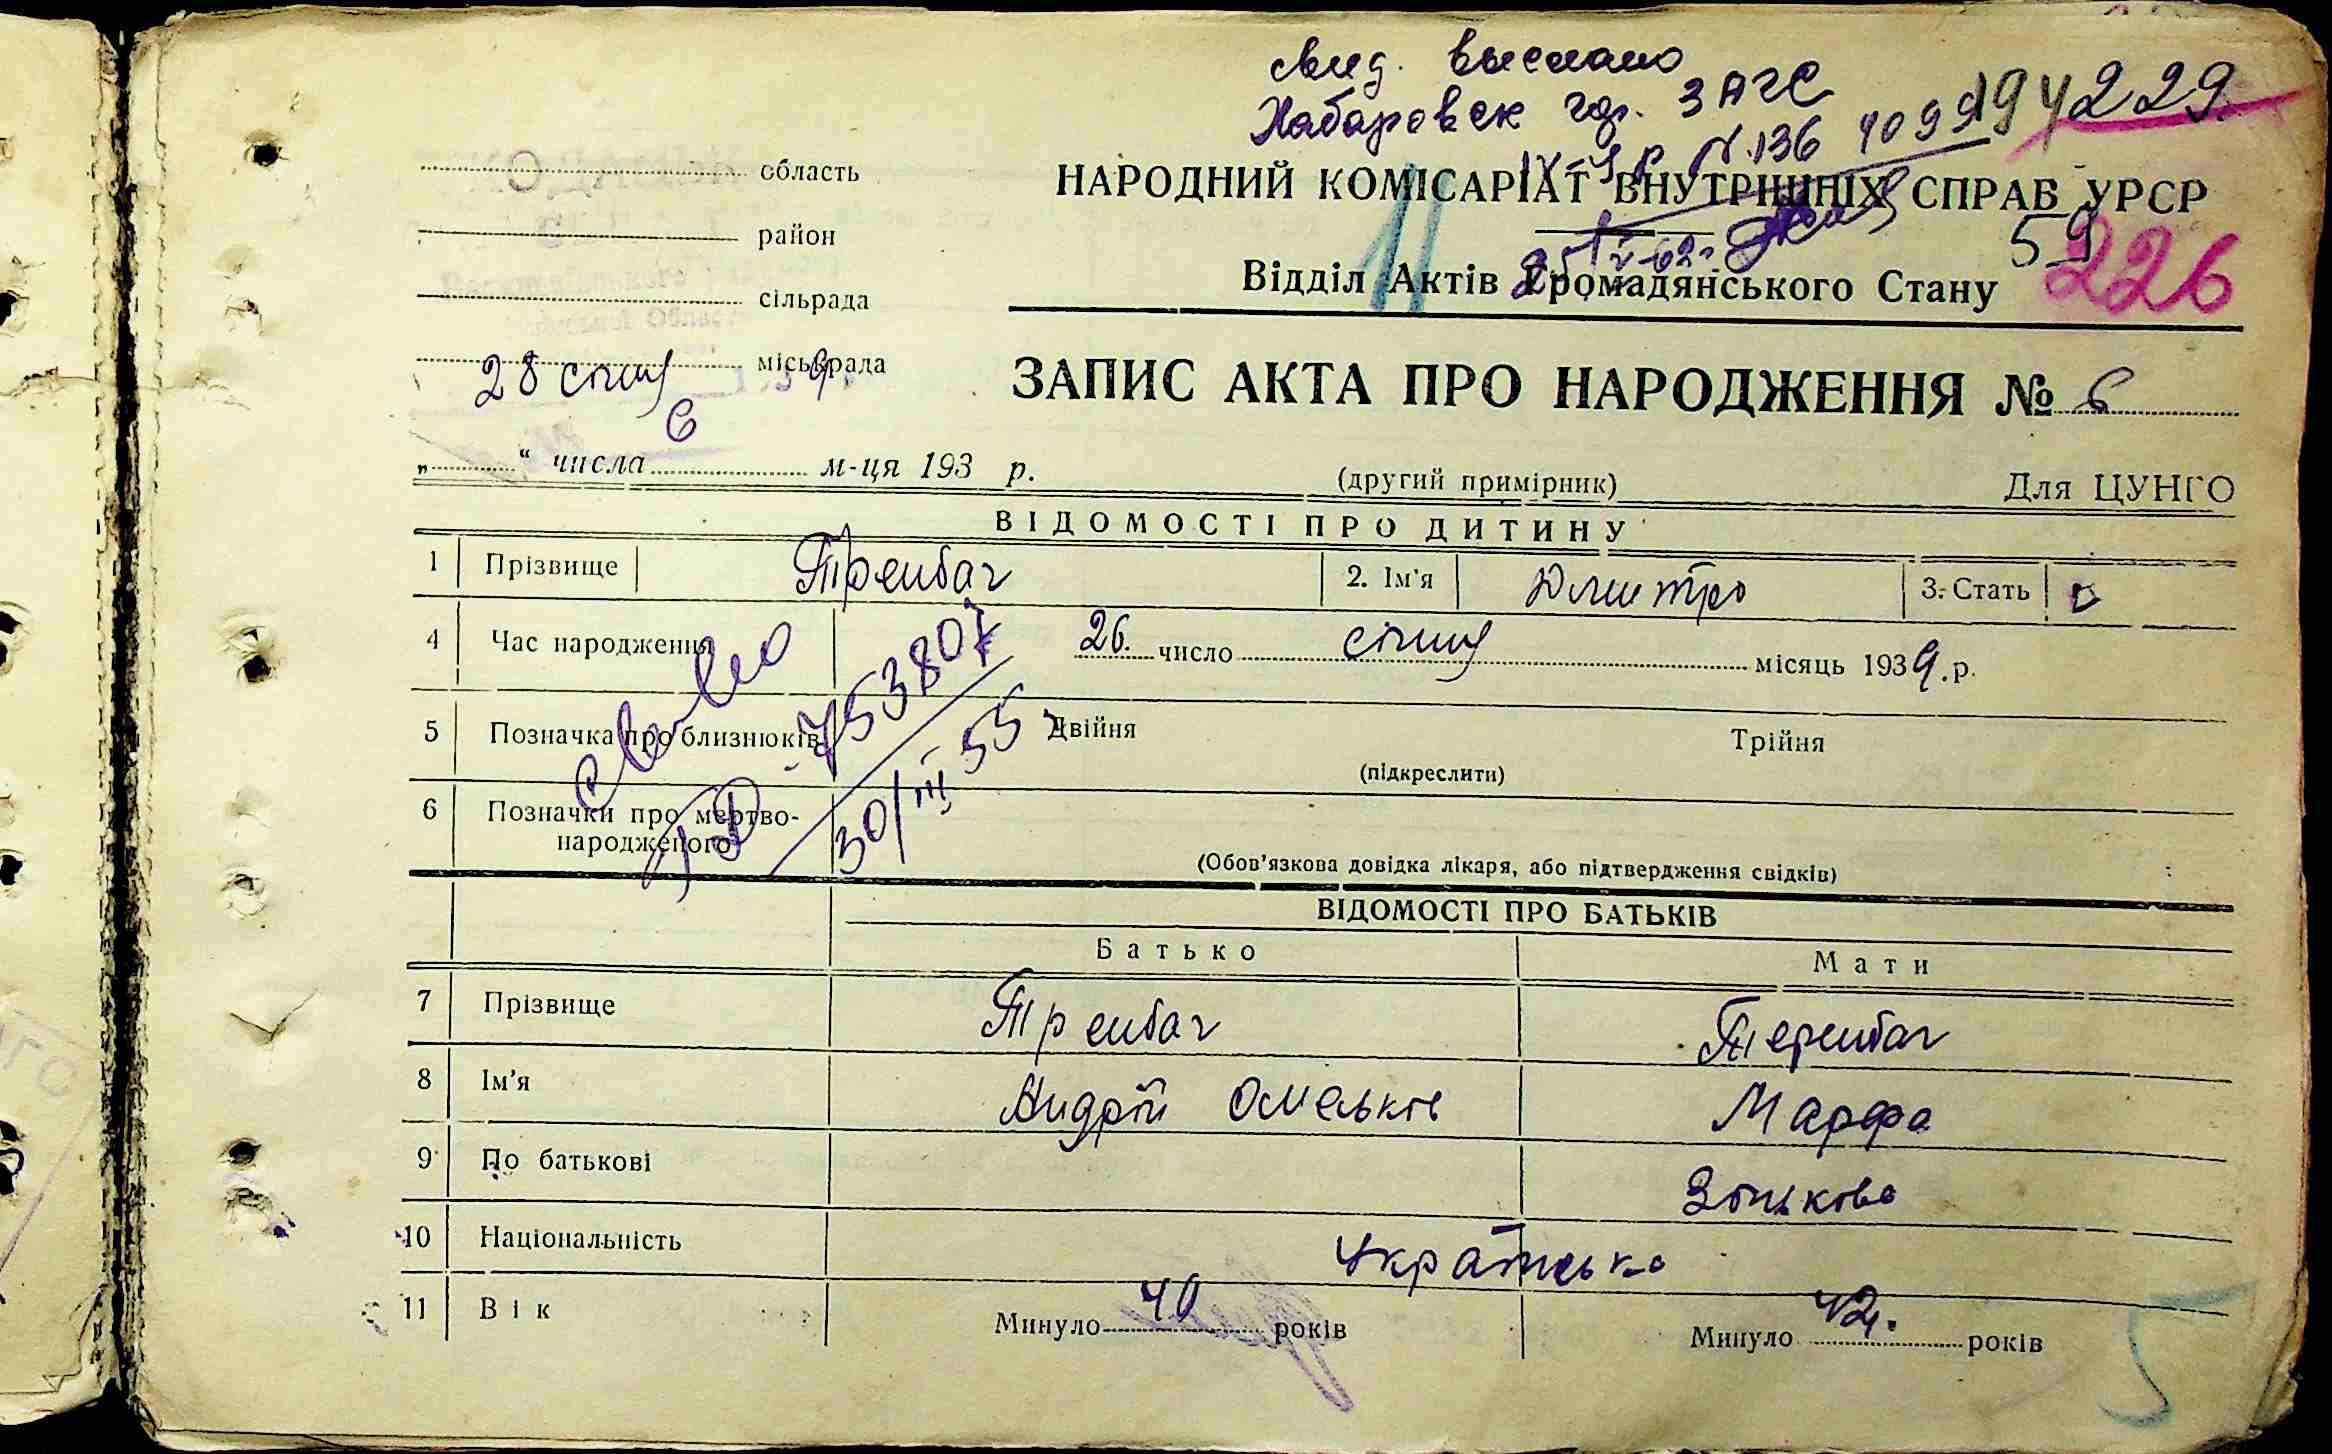 свид. выслано
Хабаровск гор. ЗАГС
№ 136 4099
194 229
область
район
сільрада
міськрада
28 січня 9
6
„ “ числа м-ця 193 р.
НАРОДНИЙ КОМІСАРІАТ ВНУТРІШНІХ СПРАВ УРСР
11
59
226
Відділ Актів Громадянського Стану
ЗАПИС АКТА ПРО НАРОДЖЕННЯ № 6
(другий примірник)
Для ЦУНГО
ВІДОМОСТІ ПРО ДИТИНУ
1 Прізвище Трейбач 2. Ім'я Дмитро 3. Стать
4 Час народження 26. число січня місяць 1939. р.
5 Позначка про близнюків Двійня Трійня
(підкреслити)
753807
30/III 55
6 Позначки про мертво-
народженого
(Обов'язкова довідка лікаря, або підтвердження свідків)
ВІДОМОСТІ ПРО БАТЬКІВ
Батько Мати
7 Прізвище Трейбач Терибач
8 Ім'я Андрій Омельков Марфа
9 По батькові Зінькова
10 Національність Українська
11 Вік Минуло 40 років Минуло 42. років
5